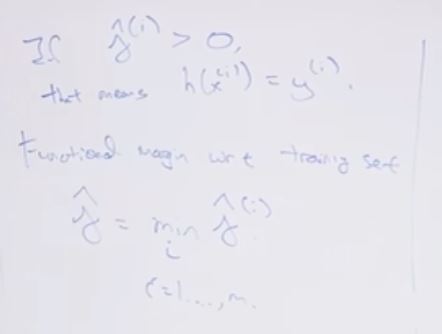 If γ̂⁽ⁱ⁾ > 0,
that means h(x⁽ⁱ⁾) = y⁽ⁱ⁾.
Functional margin wrt training set
γ̂ = min γ̂⁽ⁱ⁾
i
i=1...,m.